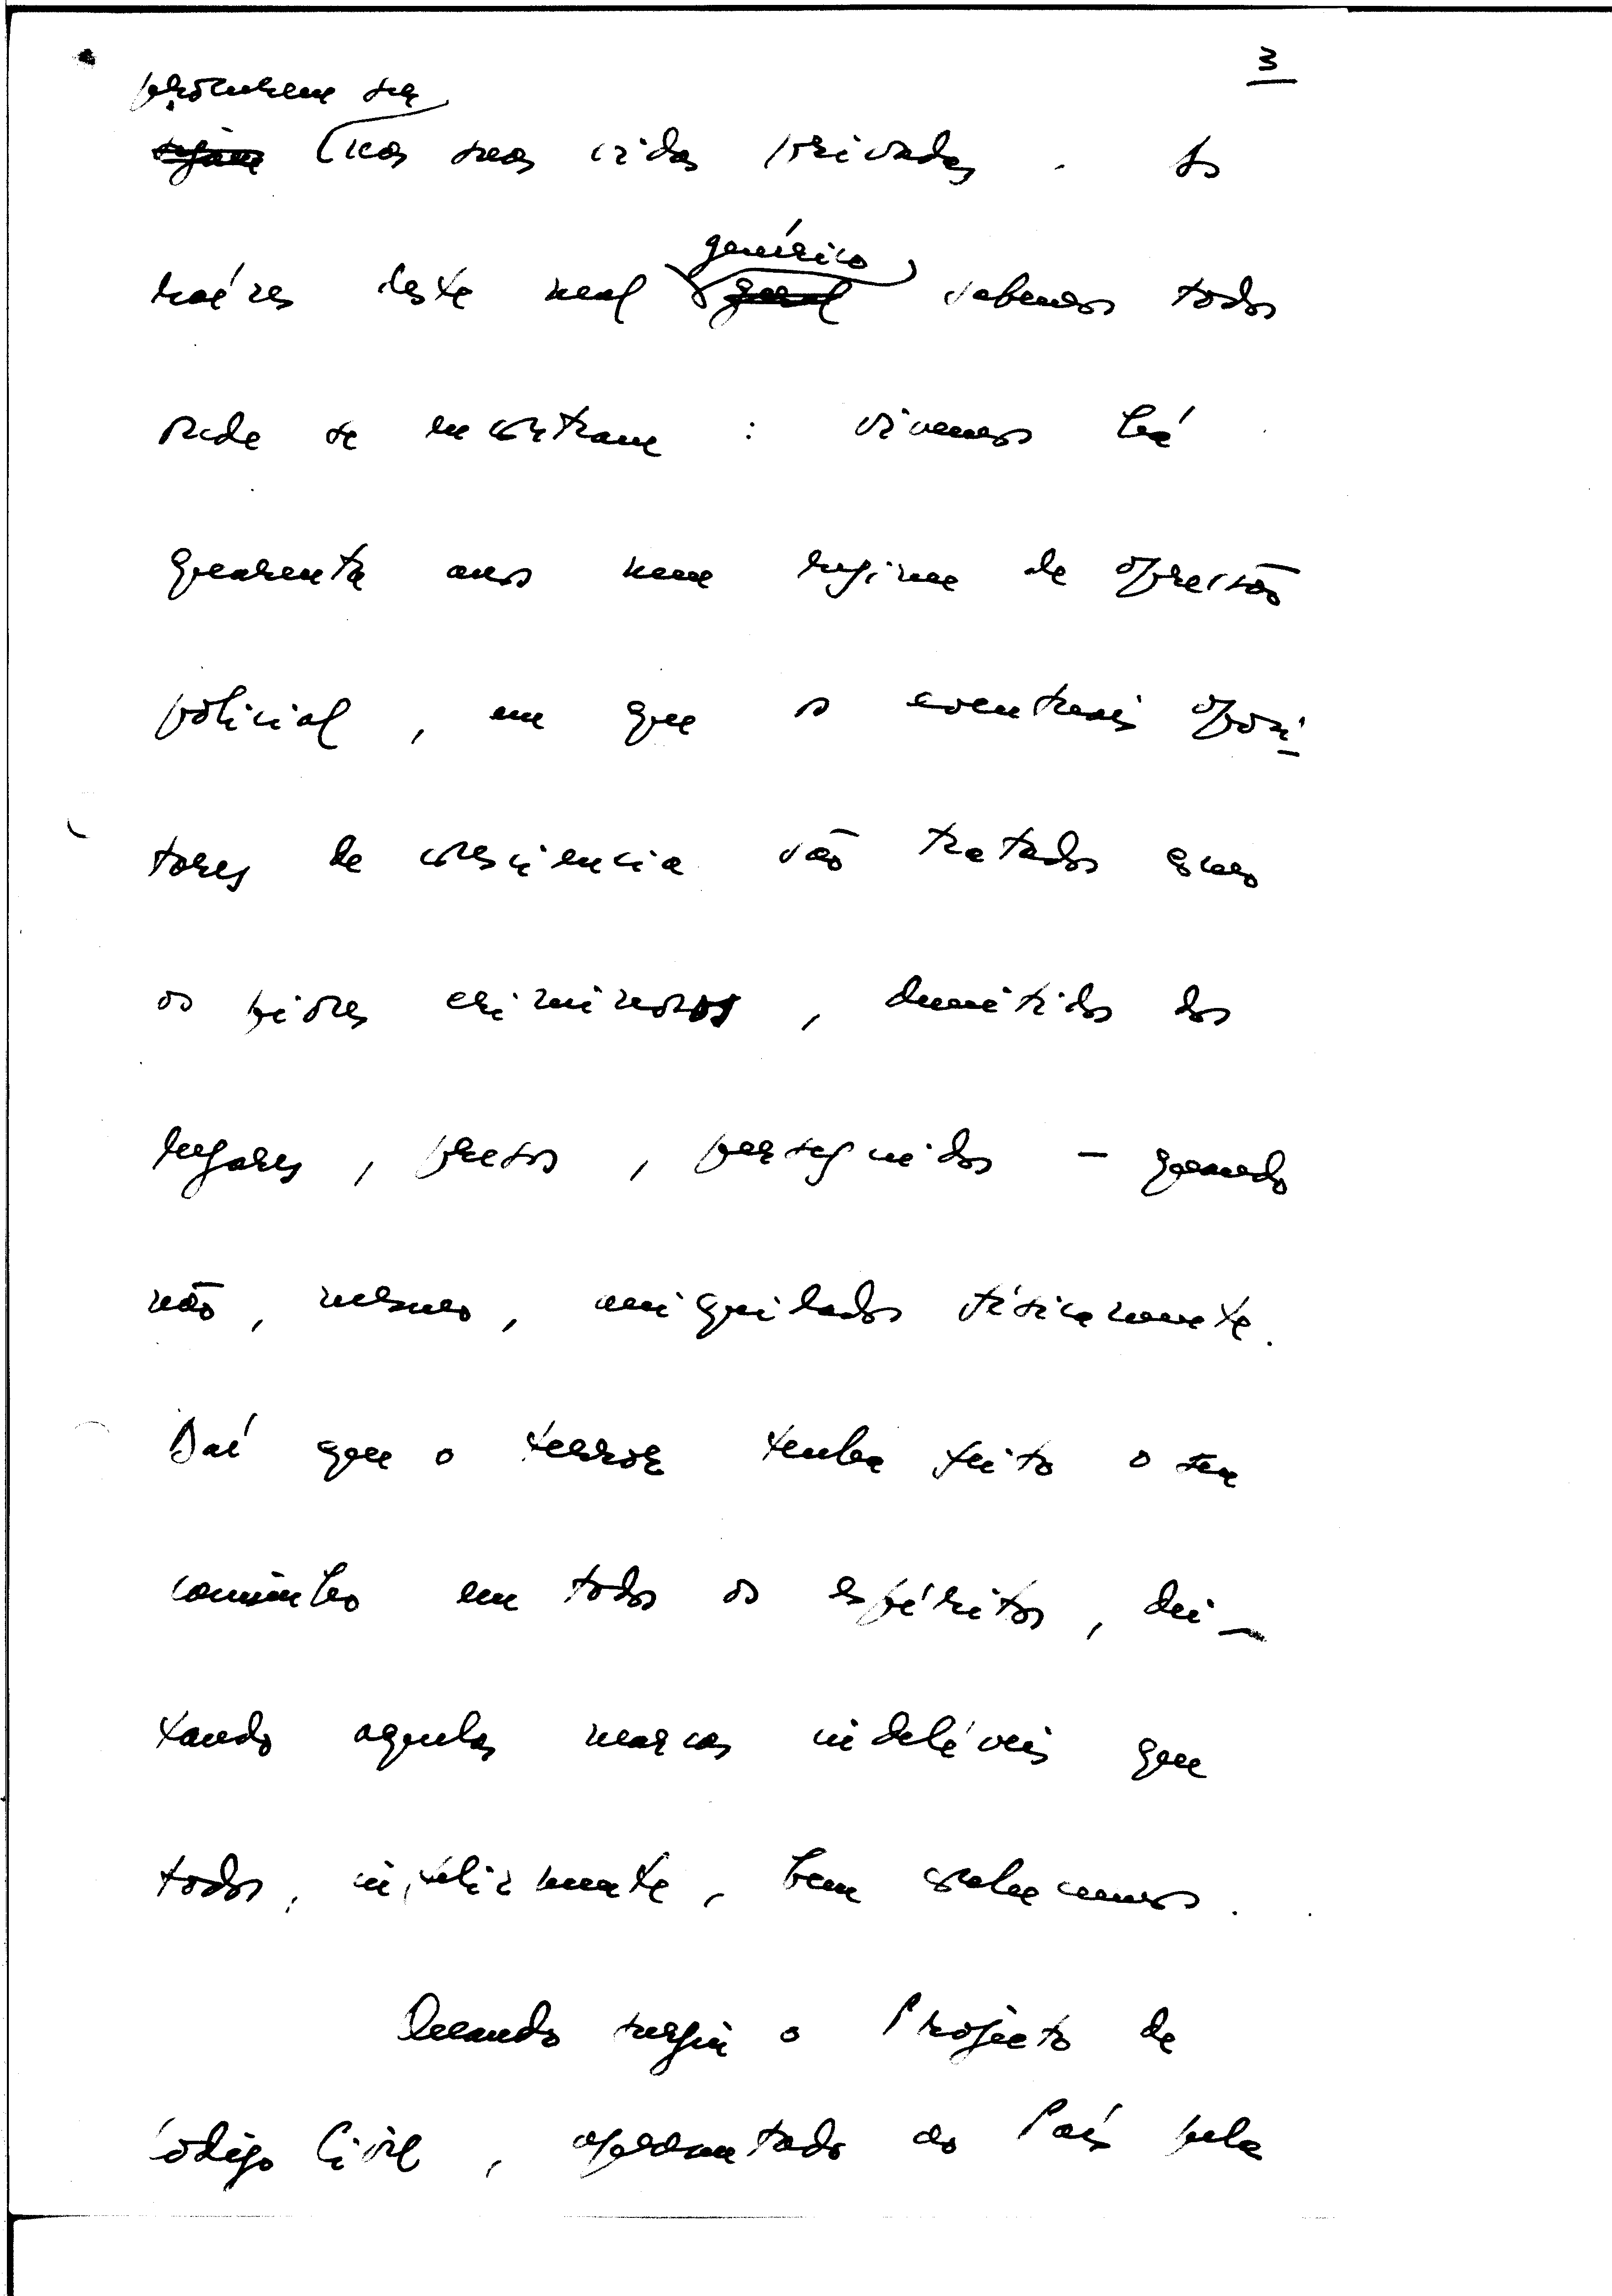 3
procurem ser
sejam nas suas vidas privadas. As
raízes deste mal genérico geral sabemos todos
onde se encontram : vivemos há
quarenta anos num regime de opressão
policial, em que os eventuais oposi-
tores de consciencia são tratados como
os piores criminosos, demitidos dos
lugares, presos, perseguidos - quando
não, mesmo, aniquilados fisicamente.
Daí que o terror tenha feito o seu
caminho em todos os espíritos, dei-
xando aquelas marcas indeléveis que
todos, infelizmente, bem conhecemos.
Quando surgiu o Projecto de
Código Civil, apresentado ao País pela